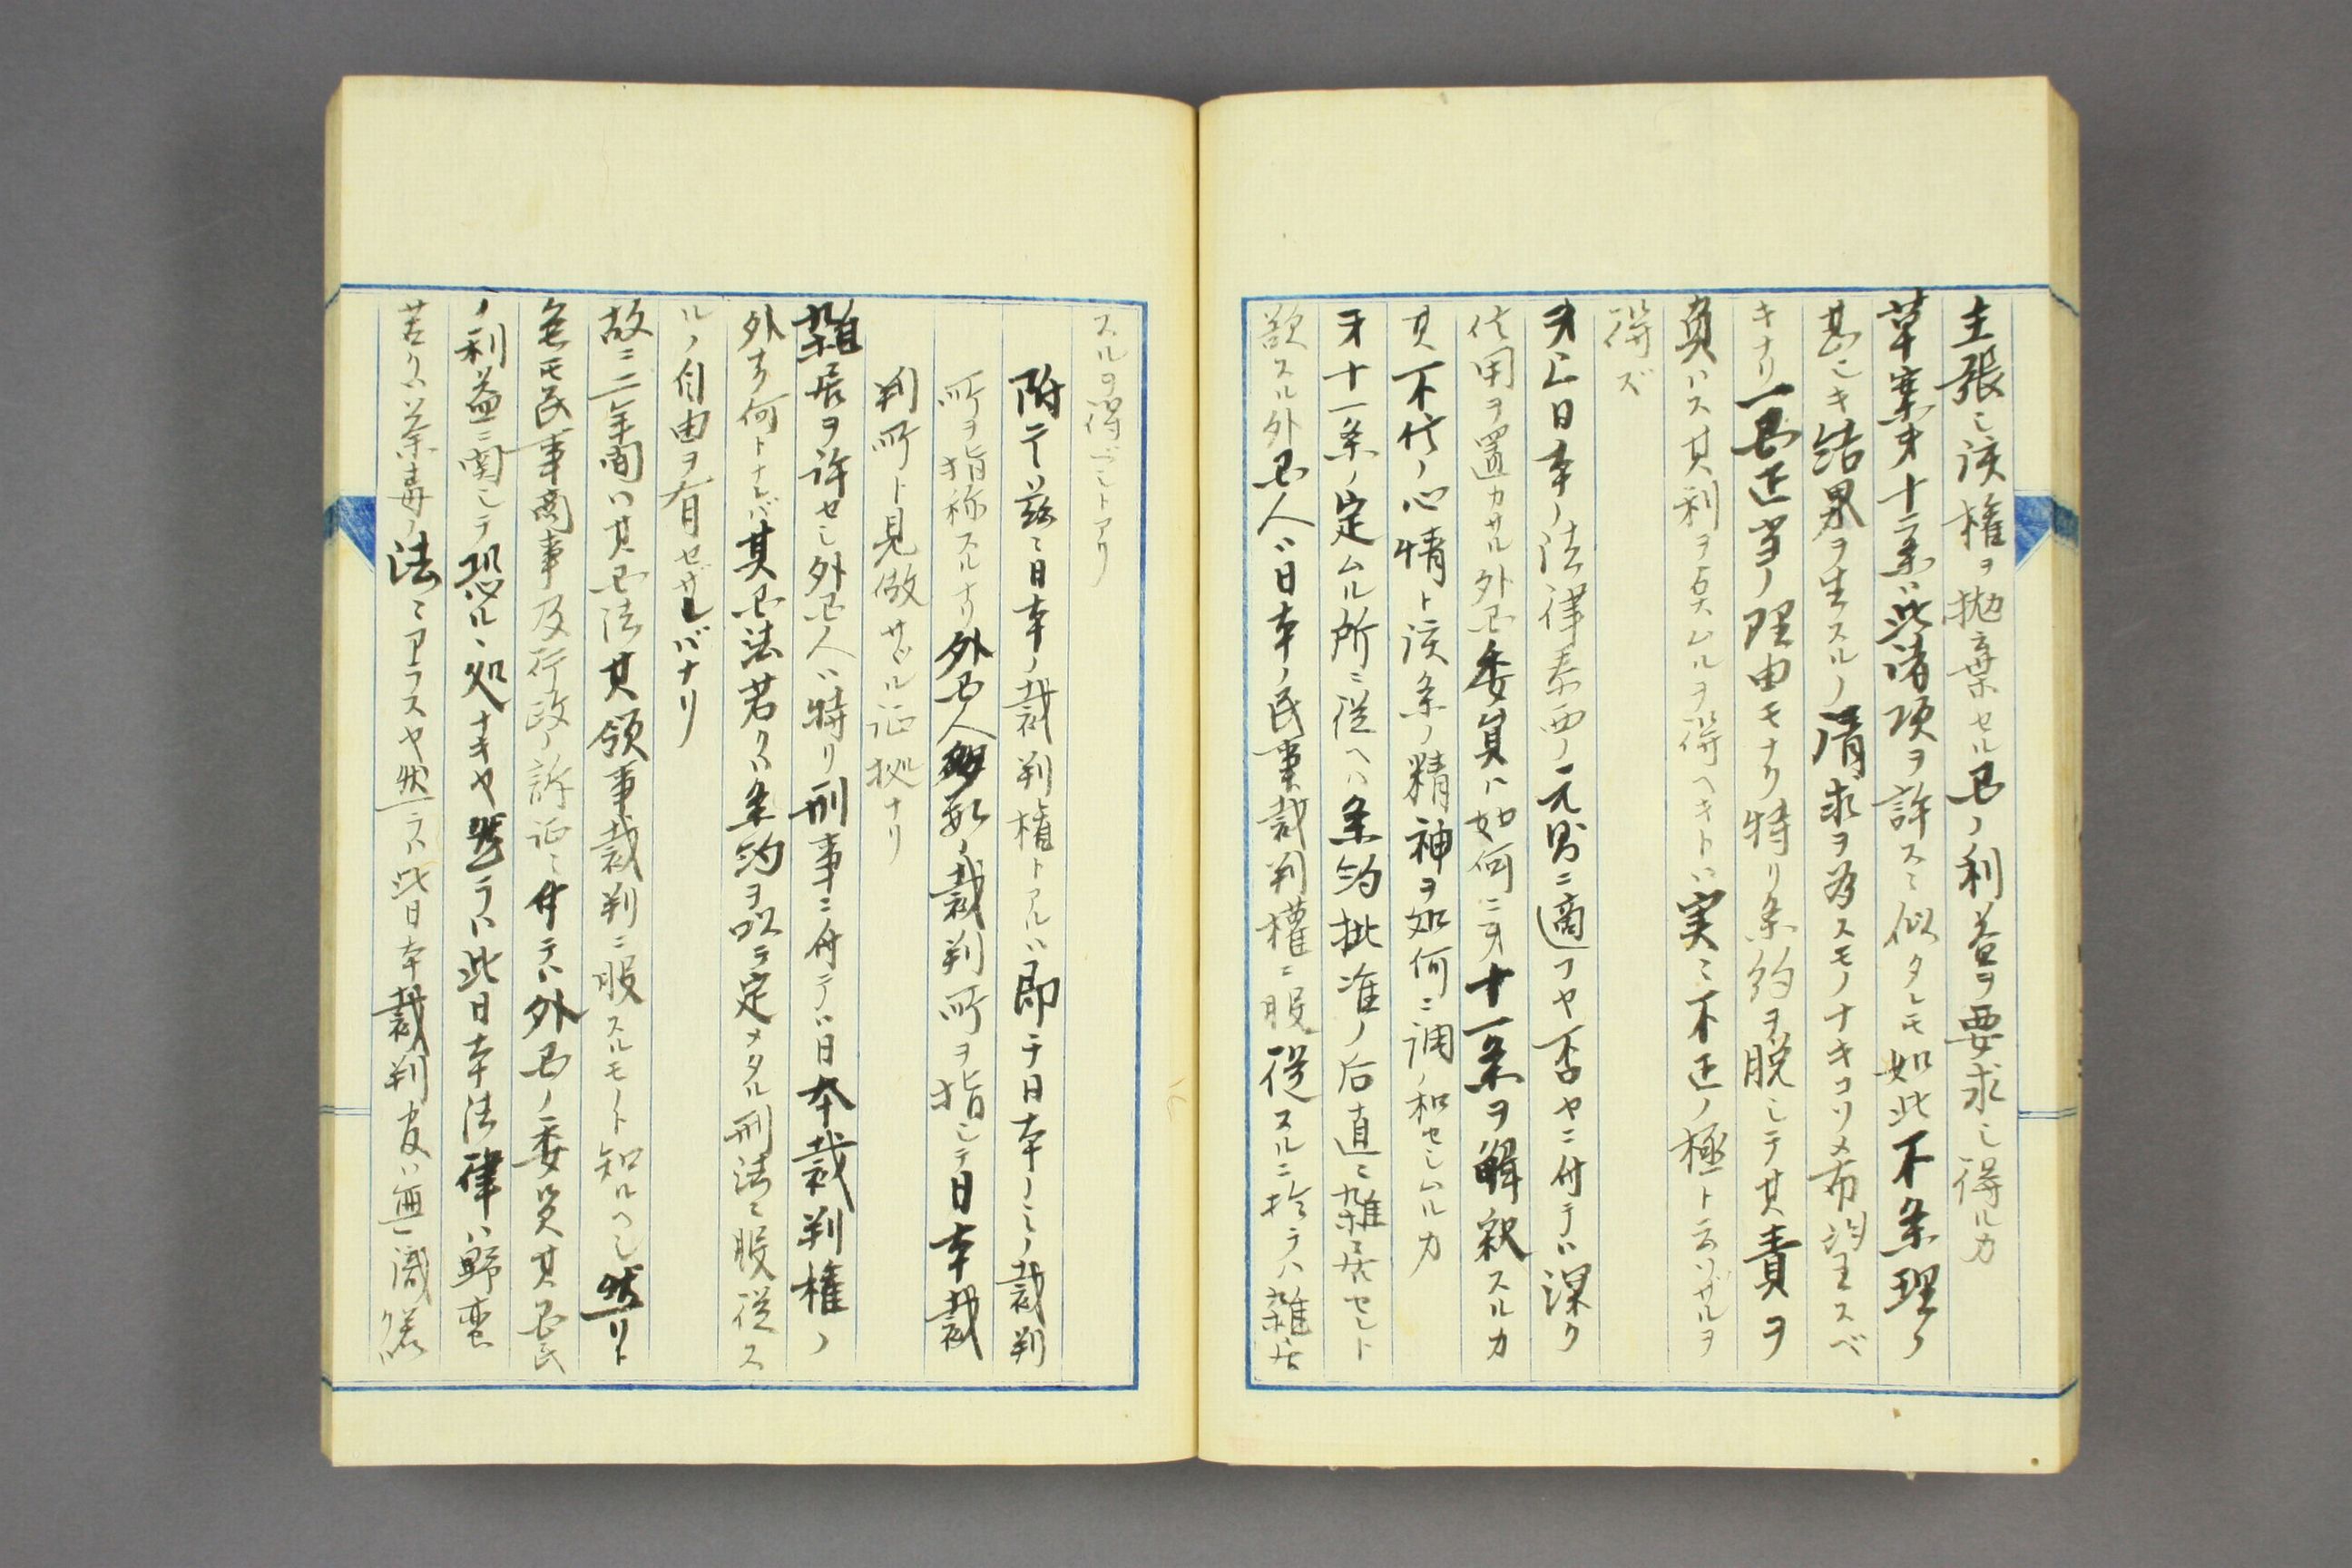 主張シ該権ヲ抛棄セル国ノ利益ヲ要求シ得ルカ
草案第十二条ハ此諸項ヲ許スニ似タレモ如此不条理ノ
甚シキ結果ヲ生スルノ請求ヲ為スモノナキコソメ希望スベ
キナリ一国正当ノ理由モナク特リ条約ヲ脱シテ其責ヲ
負ハス其利ヲ占ムルヲ得ヘキトハ実ニ不正ノ極ト云ハザルヲ
得ズ
第上日本ノ法律泰西ノ元則ニ適フヤ否ヤニ付テハ深ク
信用ヲ置カサル外国委員ハ如何ニ第十一条ヲ解釈スルカ
其不信ノ心情ト該条ノ精神ヲ如何ニ調和セシムルカ
第十一条ノ定ムル所ニ従ヘハ条約批准ノ后直ニ雑居セント
欲スル外国人ハ日本ノ民事裁判權ニ服従スルニ於テハ雑居
スルヲ得ベシトアリ
附テ茲ニ日本ノ裁判権トアルハ即チ日本ノミノ裁判
所ヲ指称スルナリ外国人多数ノ裁判所ヲ指シテ日本裁
判所ト見做サヾル証拠ナリ
雑居ヲ許セシ外国人ハ特リ刑事ニ付テハ日本裁判権ノ
外ナリ何トナレバ其国法若クハ条約ヲ以テ定メタル刑法ニ服従ス
ルノ自由ヲ有セザレバナリ
故ニ二年間ハ其国法其領事裁判ニ服スルモノト知ルヘシ然リト
雖モ民事商事及行政ノ訴訟ニ付テハ外国ノ委員其国民
ノ利益ニ関シテ恐ルヽ処ナキヤ然ラハ此日本法律ハ野蛮
若クハ荼毒ノ法ニアラスヤ然ラハ此日本裁判官ハ無識